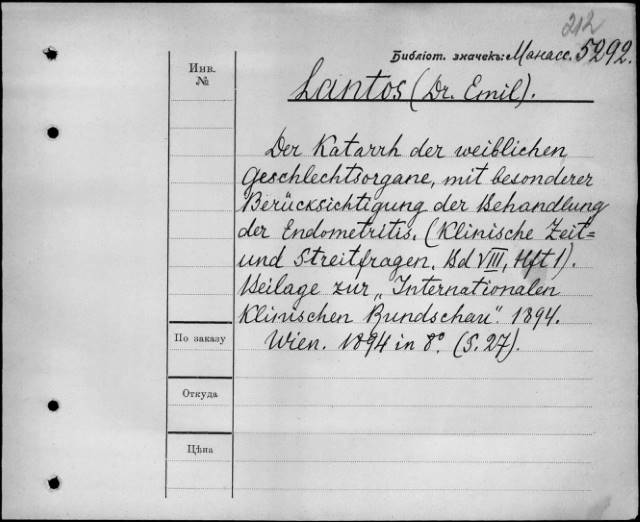 212
Библіот. значекъ: Манасс. 5292.
Инв.
№
Lantos (Dr. Emil).
Der Katarrh der weiblichen
Geschlechtsorgane, mit besonderer
Berücksichtigung der Behandlung
der Endometritis. (Klinische Zeit=
und Streitfragen. Bd VIII, Hft 1).
Beilage zur „Internationalen
Klinischen Rundschau". 1894.
Wien. 1894 in 8° (S. 27).
По заказу
Откуда
Цѣна